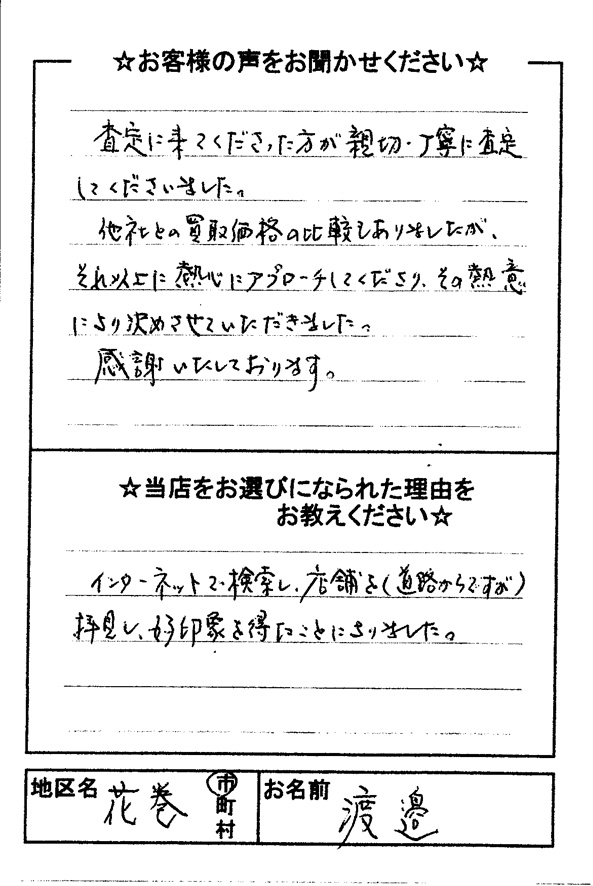 ☆お客様の声をお聞かせください☆
査定に来てくださった方が親切・丁寧に査定
してくださいました。
他社との買取価格の比較もありましたが、
それ以上に熱心にアプローチしてくださり、その熱意
により決めさせていただきました。
感謝いたしております。
☆当店をお選びになられた理由を
お教えください☆
インターネットで検索し、店舗を(道路からですが)
拝見し、好印象を得たことによりました。
地区名 花巻 市町村 お名前 渡邉